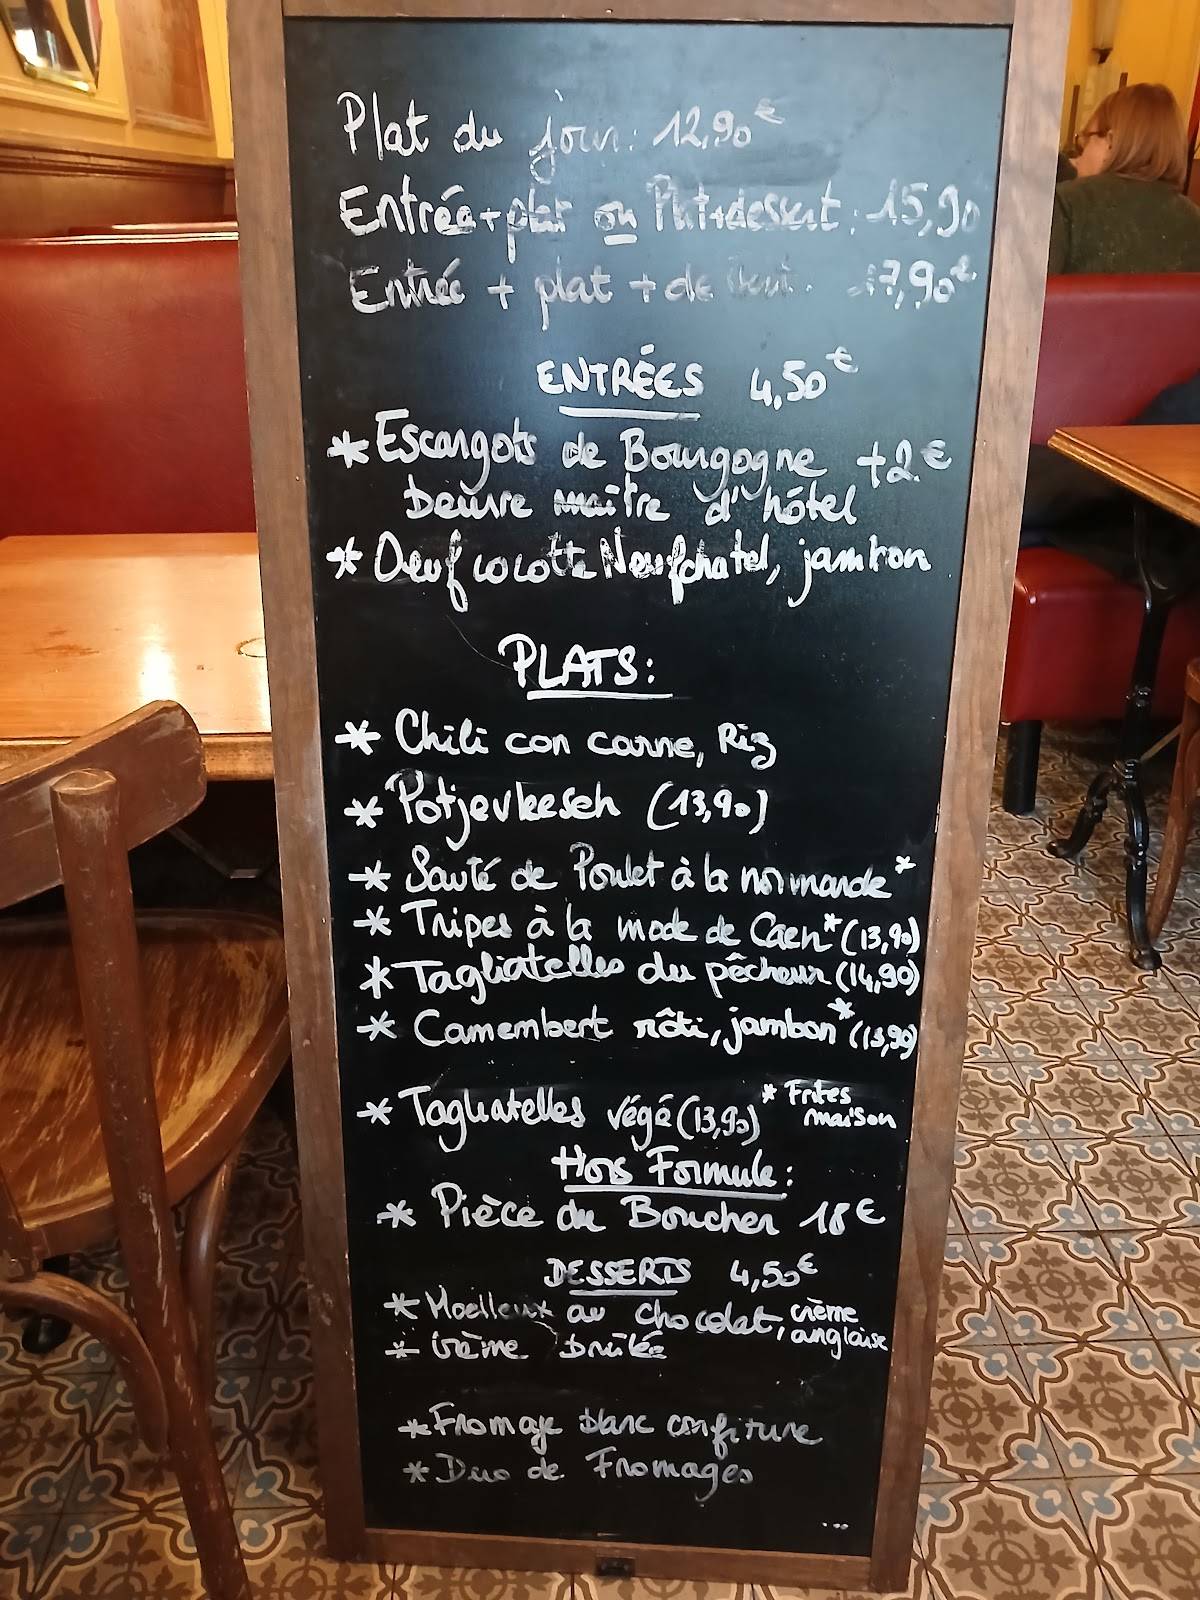 Plat du jour: 12,90€
Entrée + plat ou Plat + dessert: 15,90
Entrée + plat + dessert. 17,90€
ENTRÉES 4,50€
* Escargots de Bourgogne +2€
beurre maître d'hôtel
* Oeuf cocotte Neufchatel, jambon
PLATS:
* Chili con carne, Riz
* Potjevleesch (13,90)
* Sauté de Poulet à la normande*
* Tripes à la mode de Caen* (13,90)
* Tagliatelles du pêcheur (14,90)
* Camembert rôti, jambon* (13,90)
* Tagliatelles végé (13,90) * Frites
maison
Hors Formule:
* Pièce du Boucher 18€
DESSERTS 4,50€
* Moelleux au chocolat, crème
anglaise
* Crème brûlée
* Fromage blanc confiture
* Duo de Fromages
...